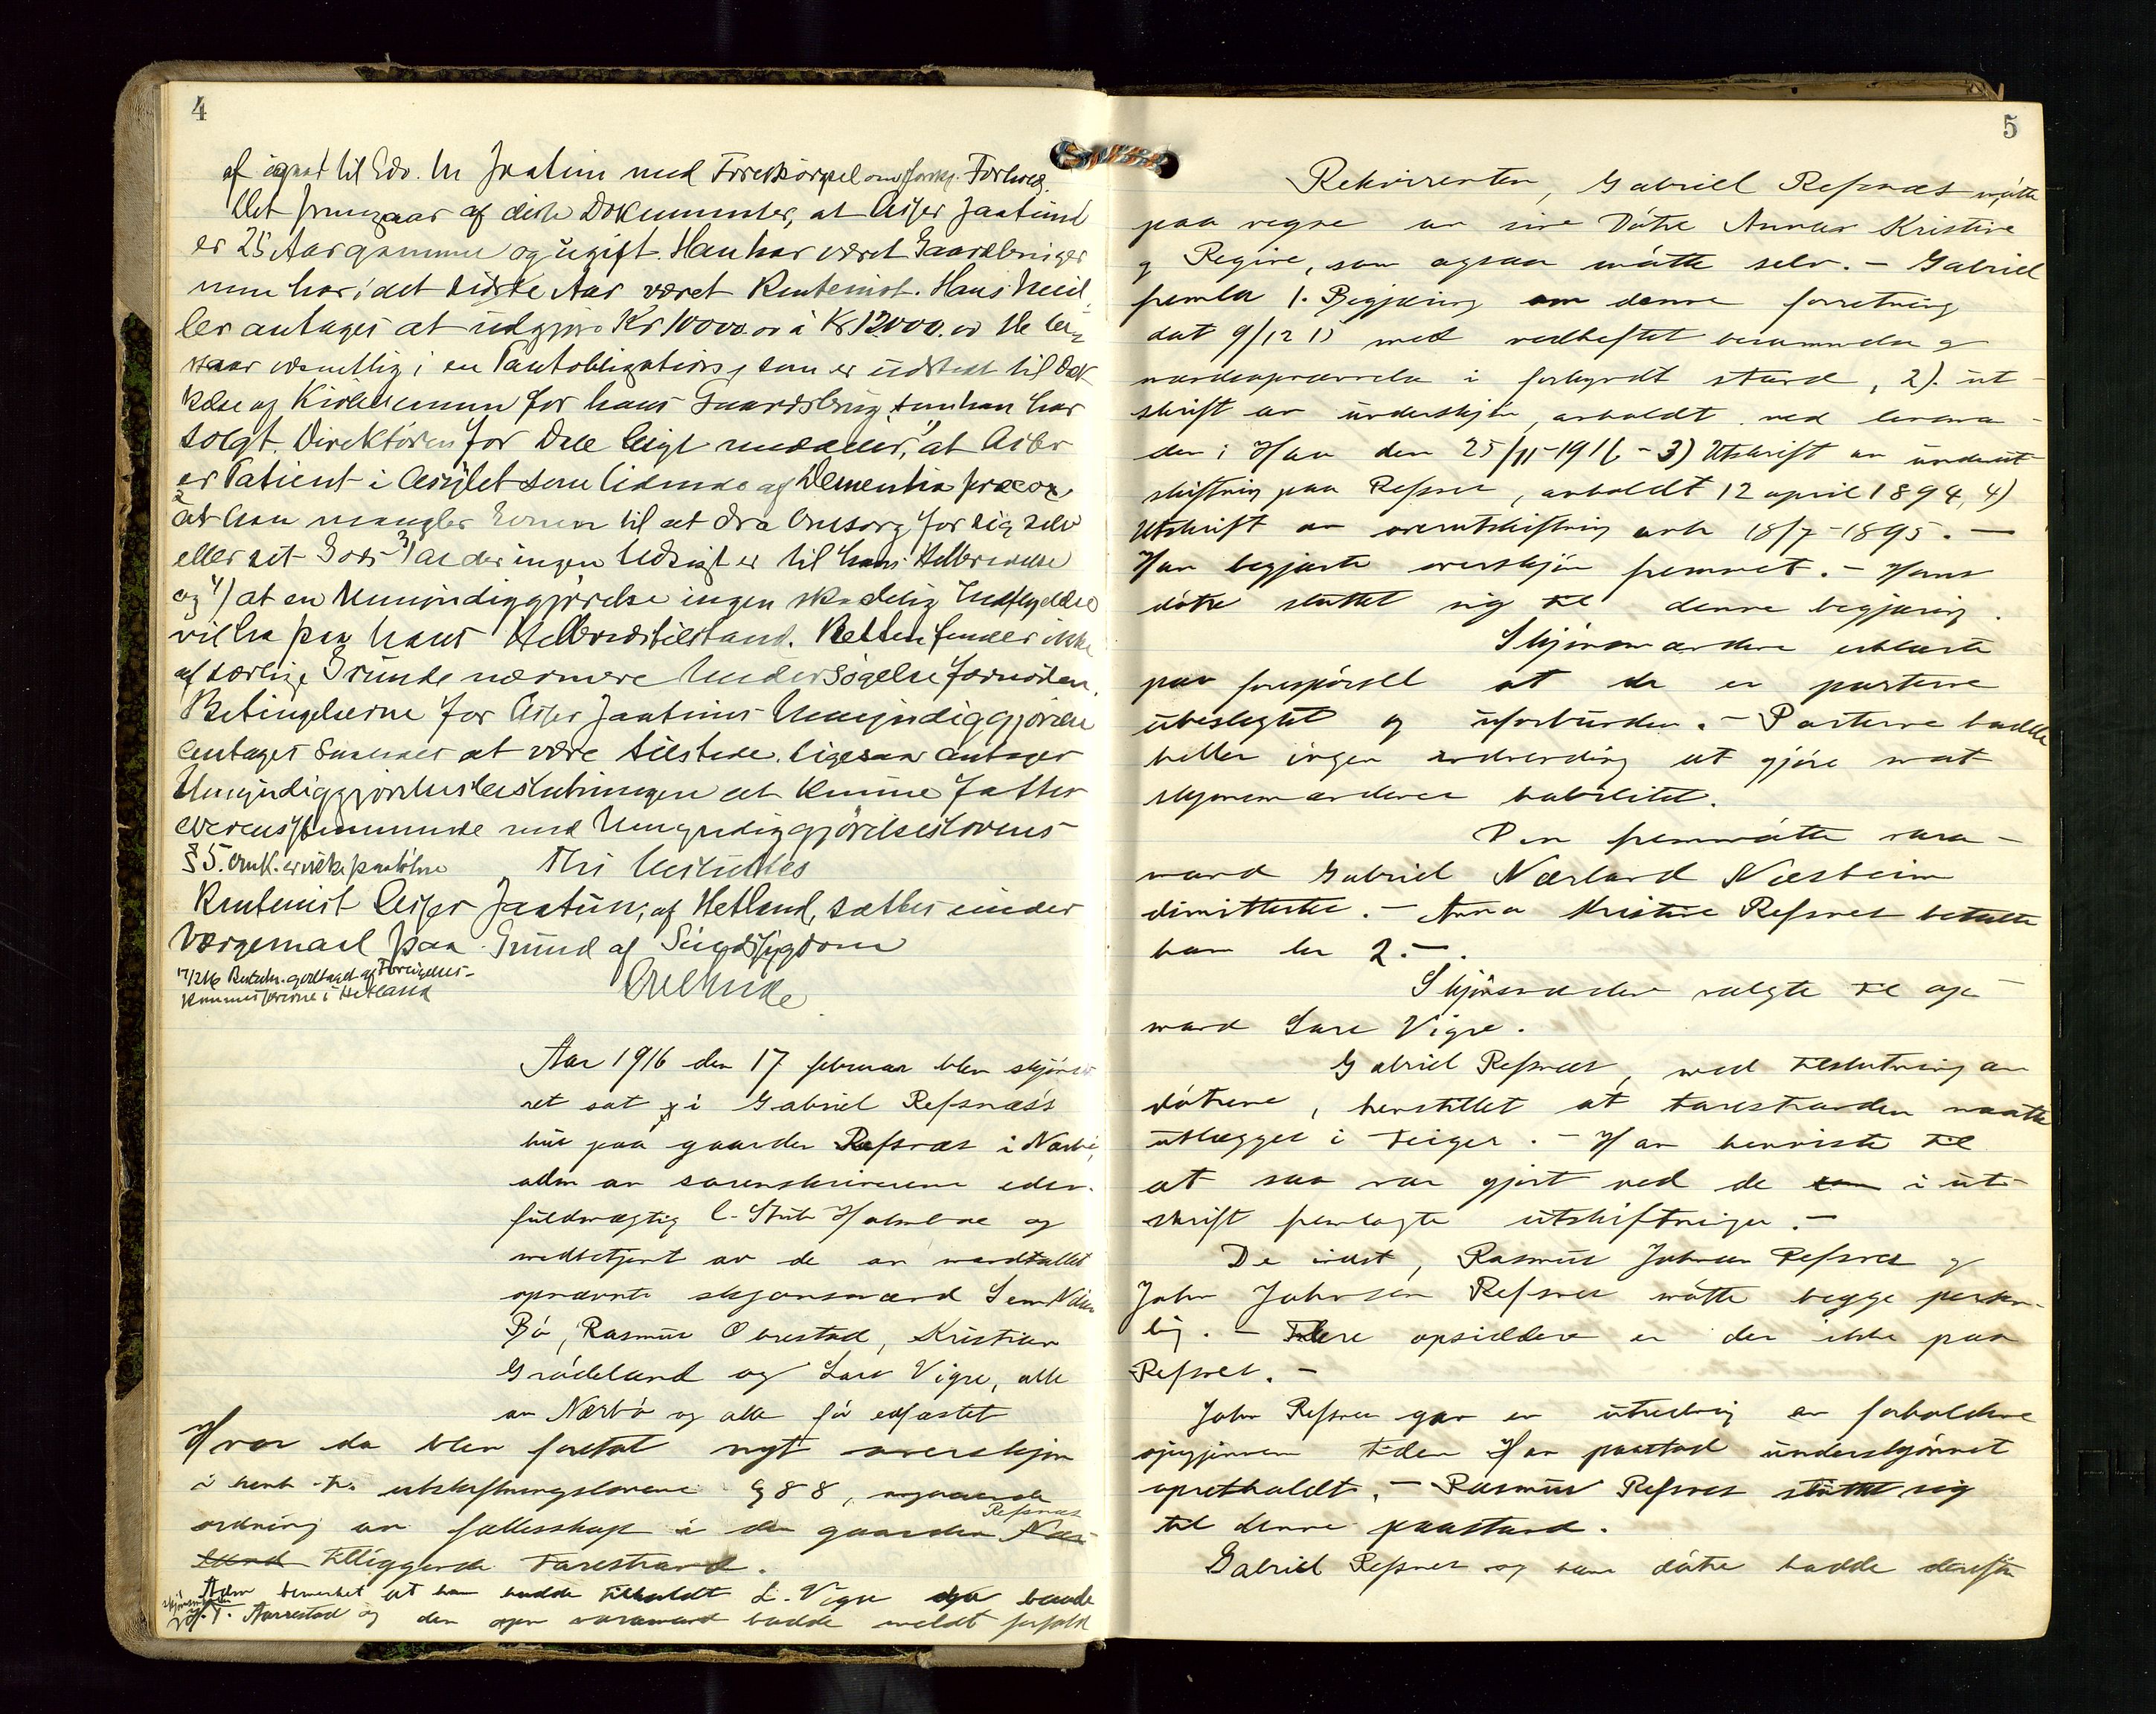 4
af til Edv. M Jaatun med Forespørgsel om Forhold.
Det fremgaar af disse Dokumenter, at Asser Jaatun
er 25 Aar gammel og ugift. Han har været Gaardbruger
men har i det sidste Aar været Rentenist. Hans Mid
ler antages at udgjøre Kr 10000.00 à Kr 12000.00 De be
staar væsentlig i en Pantobligation, som er udstedt til Dæk
kelse af Kjøbesummen for hans Gaardsbrug som han har
solgt. Direktøren for Dale Asyl meddeler, at Asser
er Patient i Asylet som lidende af Dementia præcox
at han mangler Evnen til at dra Omsorg for sig selv
eller sit Gods 3) at der ingen Udsigt er til hans Helbredelse
og 4) at en Umyndiggjørelse ingen skadelig Indflydelse
vil ha paa hans Helbredstilstand. Retten finder ikke
af særlige Grunde nærmere Undersøgelse fornøden.
Betingelserne for Asser Jaatuns Umyndiggjørelse
antages saaledes at være tilstede, ligesaa antages
Umyndiggjørelsesbeslutningen at kunne fattes
overensstemmende med Umyndiggjørelseslovens
§ 5. er ikke paa
Thi besluttes
Rentenist Asser Jaatun, af Hetland, sættes under
Værgemaal paa Grund af Sindssygdom
17/2 16 af Forligelses-
kommissærerne i Hetland
Aar 1916 den 17 februar blev skjøns
ret sat i Gabriel Refsnæs's
hus paa gaarden Refsnæs i Nærbø,
adm av sorenskriverens edsv.
fuldmægtig og
medbetjent av de av mandtallet
opnævnte skjønsmænd
Bø, Rasmus Obrestad, Kristian
Grødeland og Lars Vigre, alle
av Nærbø og alle før edfæstet
Hvor da blev foretat nyt overskjøn
i henh. til utskiftningslovens § 88, angaaende
Refsnæs
ordning av fællesskap i den gaarden Nær-
land tilliggende tarestrand.
Adm bemerket at han hadde tilkaldt L. Vigre da baade
skjønsmanden
T. Aarrestad og den varamand hadde meldt forfald
5
Rekvirenten, Gabriel Refsnæs møtte
paa vegne av sine døtre Anna Kristine
og Regine, som ogsaa møtte selv. - Gabriel
freml 1. Begjæring om denne forretning
dat 9/12 15 med vedheftet berammelse og
mandsopnævnelse i forkyndt stand, 2). ut-
skrift av underskjøn, avholdt ved lensman
den i Haa den 25/11-191 - 3) Utskrift av underut
skiftning paa Refsnes, avholdt 12 april 1894, 4)
Utskrift av overutskiftning avh 18/7-1895. —
Han begjærte overskjøn fremmet. - Hans
døtre sluttet sig til denne begjæring.
Skjønsmændene erklærte
paa forespørsel at de er parterne
ubeslegtet og uforbunden. - Parterne hadde
heller ingen indvending at gjøre mot
skjønsmændenes habilitet.
Den fremmøtte vara-
mand Gabriel Nærland Næsheim
dimittertes. - Anna Kristine Refsnes betalte
ham kr 2.-.
Skjønsmændene valgte til op-
mand Lars Vigre.
Gabriel Refsnæs, med tilslutning av
døtrene, henstillet at tarestranden maatte
utlægges i teiger. - Han henviste til
at saa var gjort ved de som i ut-
skrift fremlagte utskiftninger. -
De indst, Rasmus Johnsen Refsnes og
John Johnsen Refsnes møtte begge person-
lig. - Flere opsiddere er der ikke paa
Refsnes. -
John Refsnes gav en utredning av forholdene
igjennem tiden Han paastod underskjønnet
opretholdt. - Rasmus Refsnes sluttet sig
til denne paastand.
Gabriel Refsnes og hans døtre hadde derefter